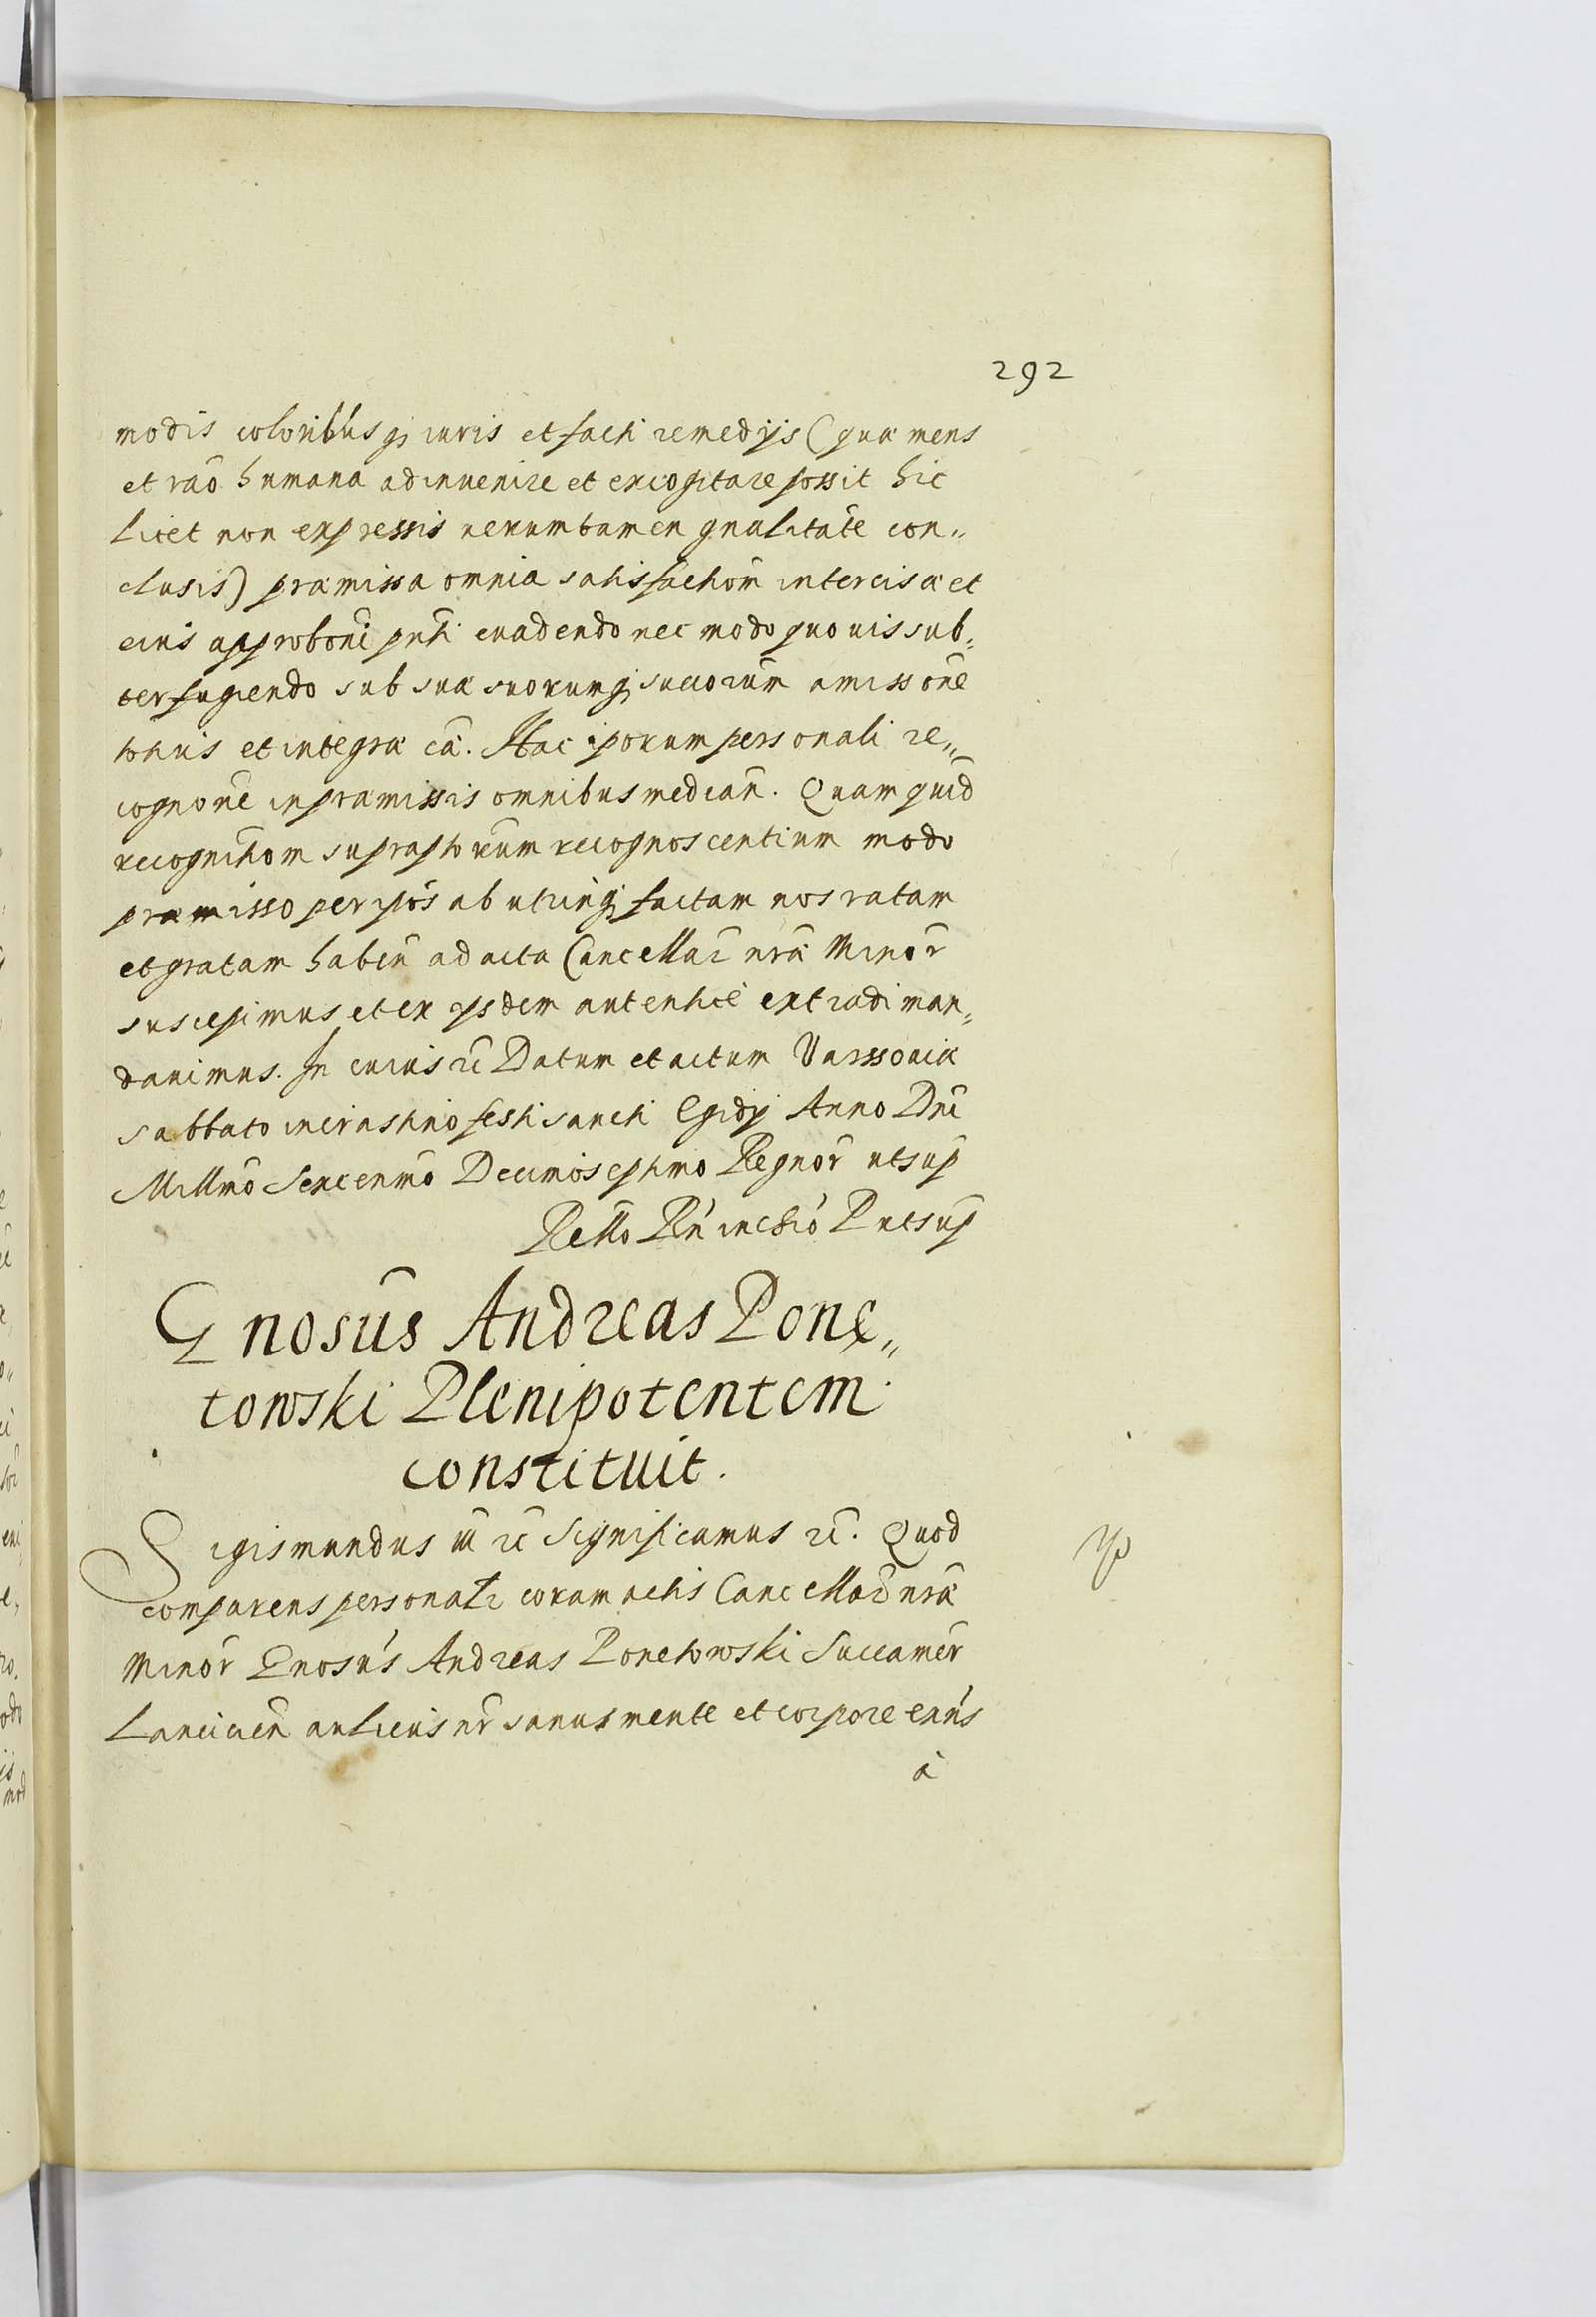 292
modis coloribus q; iuris et facti remedijs (quæ mens
et rao humana adinuenire et excogitare possit hic
licet non expressis uerumtamen gnalitate con„
clusis) præmissa omnia satisfactiom intercisæ et
eius approboni pnti euadendo nec modo quouis sub„
terfugiendo sub suæ suorumq; succorum amissone
totius et integræ cæ. Hac iporum personali re„
cognone in præmissis omnibus median. Quam quid
recognitiom supraptorum recognoscentium modo
præmisso per ipos ab utrinq; factam nos ratam
et gratam haben ad acta Cancellar nræ Minor
suscepimus et ex ysdem autentice extradi man„
dauimus. In cuius rc Datum et actum Varssouiæ
sabbato in crastino festi sancti Egidij Anno Dni
Millmo Sexcenmo Decimoseptimo Regnor ut sup
Rello Rn in chro P ut sup
Gnosus Andreas Ponę„
towski Plenipotentem
constituit.
Sigismundus iii rc Significamus rc. Quod
comparens personalr coram actis Cancellar nræ
Minor Gnosus Andreas Ponetowski Succamer
Lancicien aulicus nr sanus mente et corpore exns
a